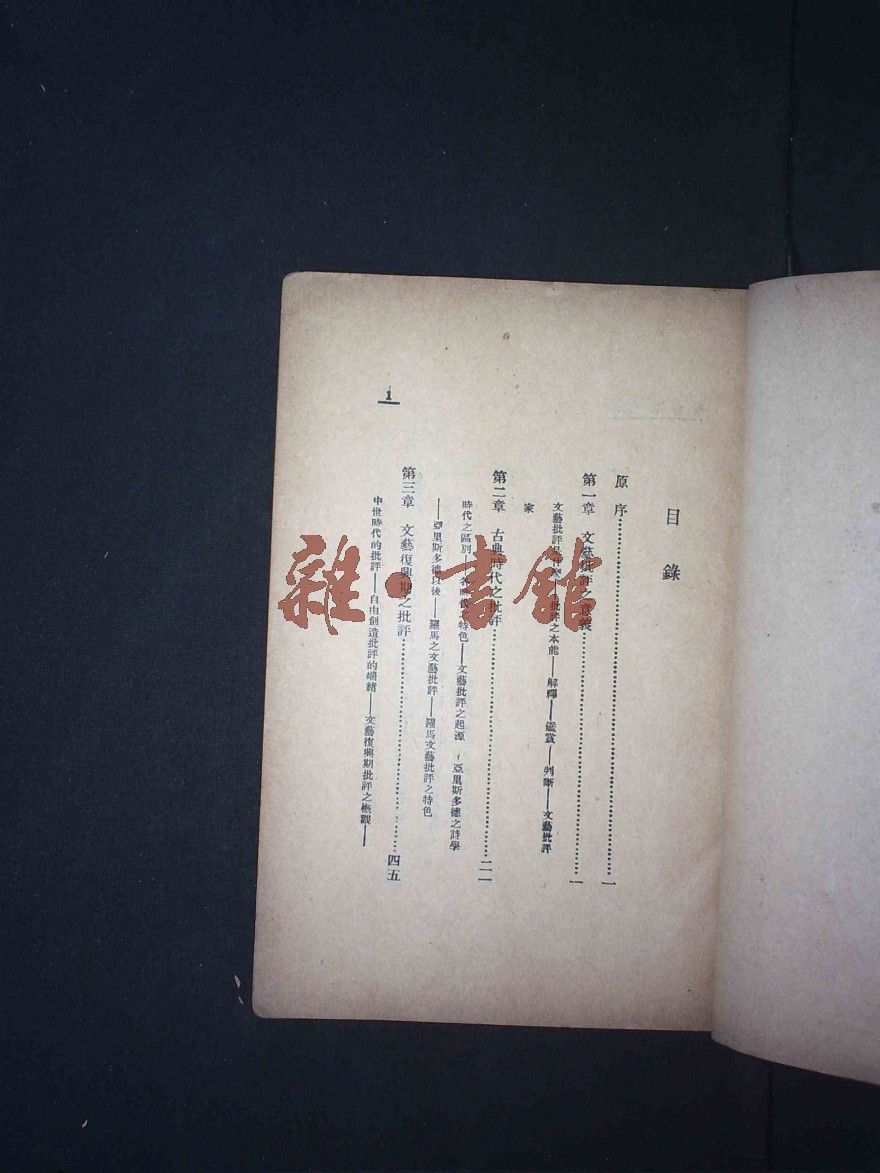 目錄
原序……一
第一章 文藝批評之意義……一
文藝批評之 批評之本能——解釋——鑑賞——判斷——文藝批評
家
第二章 古典時代之批評……二一
時代之區別——各時代之特色——文藝批評之起源——亞里斯多德之詩學
——亞里斯多德以後——羅馬之文藝批評——羅馬文藝批評之特色
第三章 文藝復興期之批評……四五
中世時代的批評——自由創造批評的端緒——文藝復興期批評之槪觀——
1
雜·書館